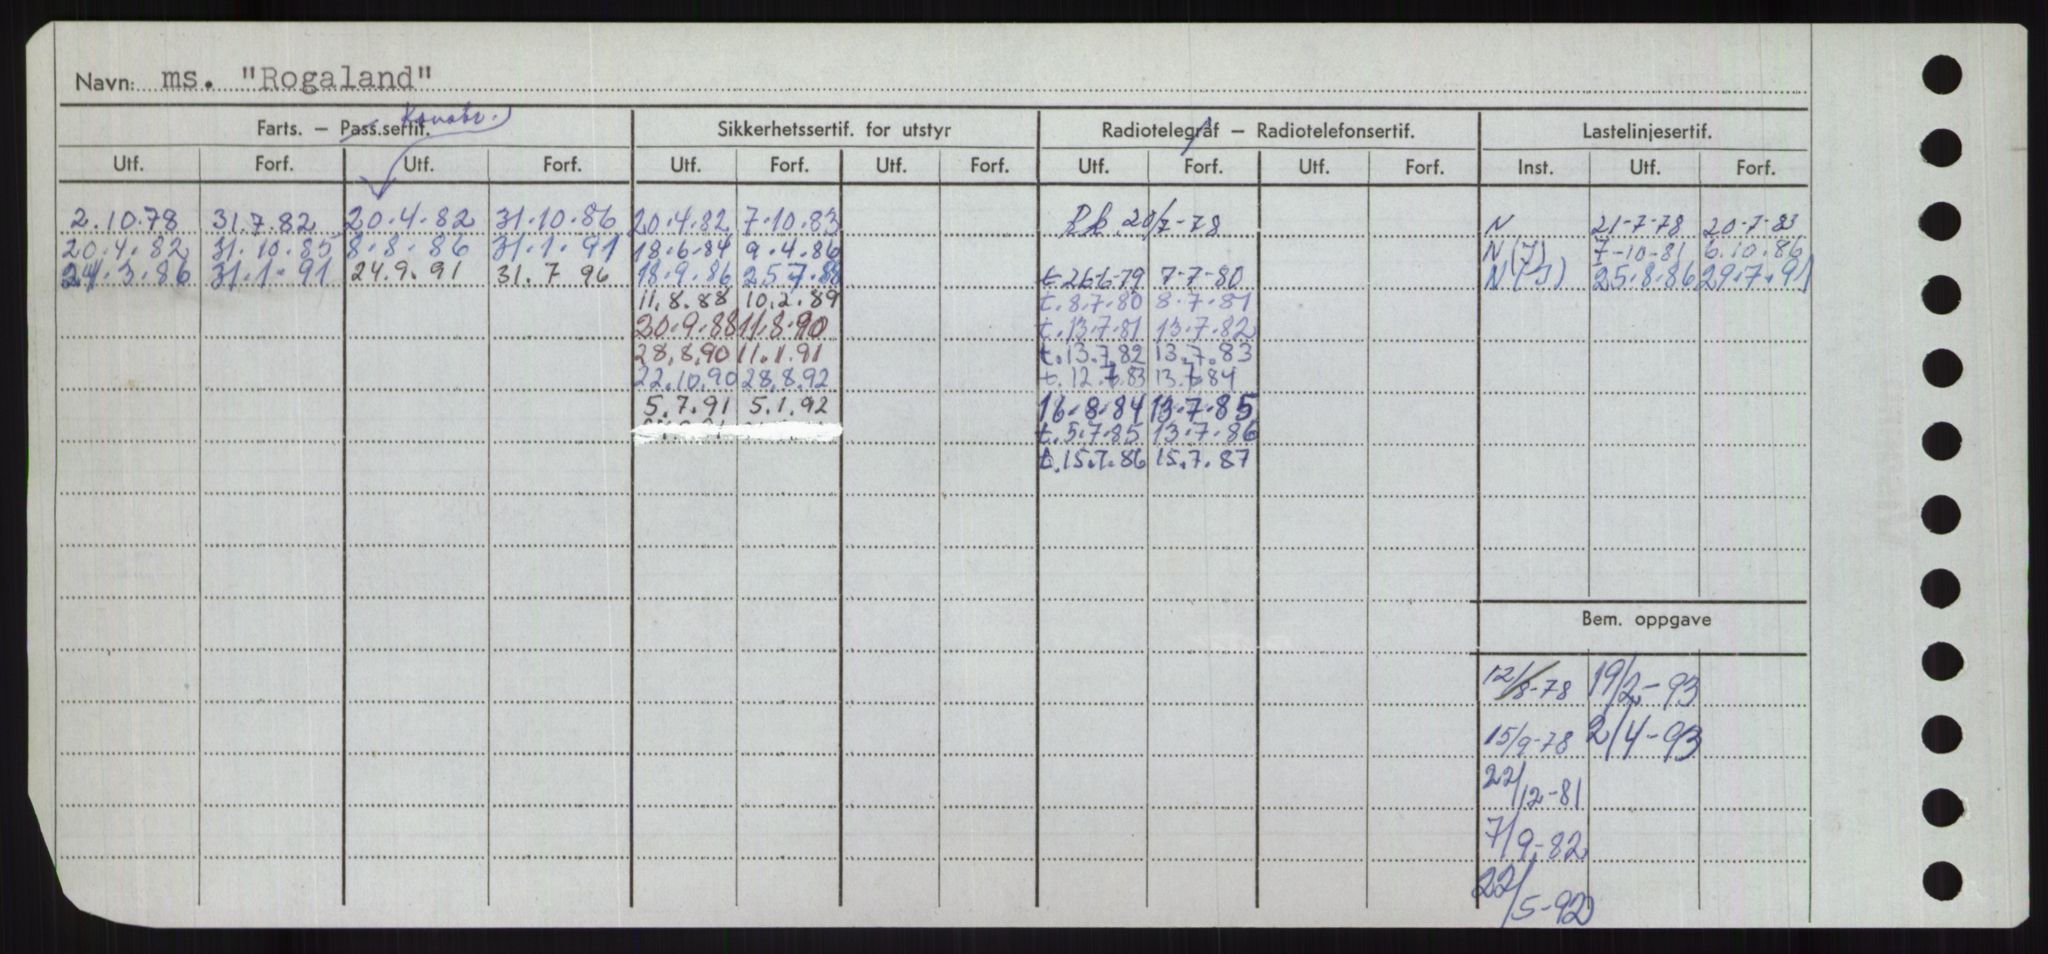 Navn: ms. "Rogaland"
Konstr.
Farts. – Pass.sertif. Sikkerhetssertif. for utstyr Radiotelegraf – Radiotelefonsertif. Lastelinjesertif.
Utf. Forf. Utf. Forf. Utf. Forf. Utf. Forf. Utf. Forf. Utf. Forf. Inst. Utf. Forf.
2.10.78 31.7.82 20.4.82 31.10.86 20.4.82 7.10.83 20/7-78 N 21-7-78 20-7-83
20.4.82 31.10.85 8.8.86 31.1.91 18.6.84 9.4.86 N(J) 7-10-81 6.10.86
24.3.86 31.1.91 24.9.91 31.7 96 18.9.86 25.7.88 t.26.6-79 7-7-80 N(J) 25.8.86 29.7.91
11.8.88 10.2.89 t.8.7.80 8.7.81
20.9.88 11.8.90 t.13.7.81 13.7.82
28.8.90 11.1.91 t.13.7.82 13.7.83
22.10.90 28.8.92 t.12.7.83 13.7.84
5.7.91 5.1.92 16.8.84 13.7.85
t.5.7.85 13.7.86
t.15.7.86 15.7.87
Bem. oppgave
12/8-78 19/2-93
15/9-78 2/4-93
22/12-81
7/9-82
22/5-92